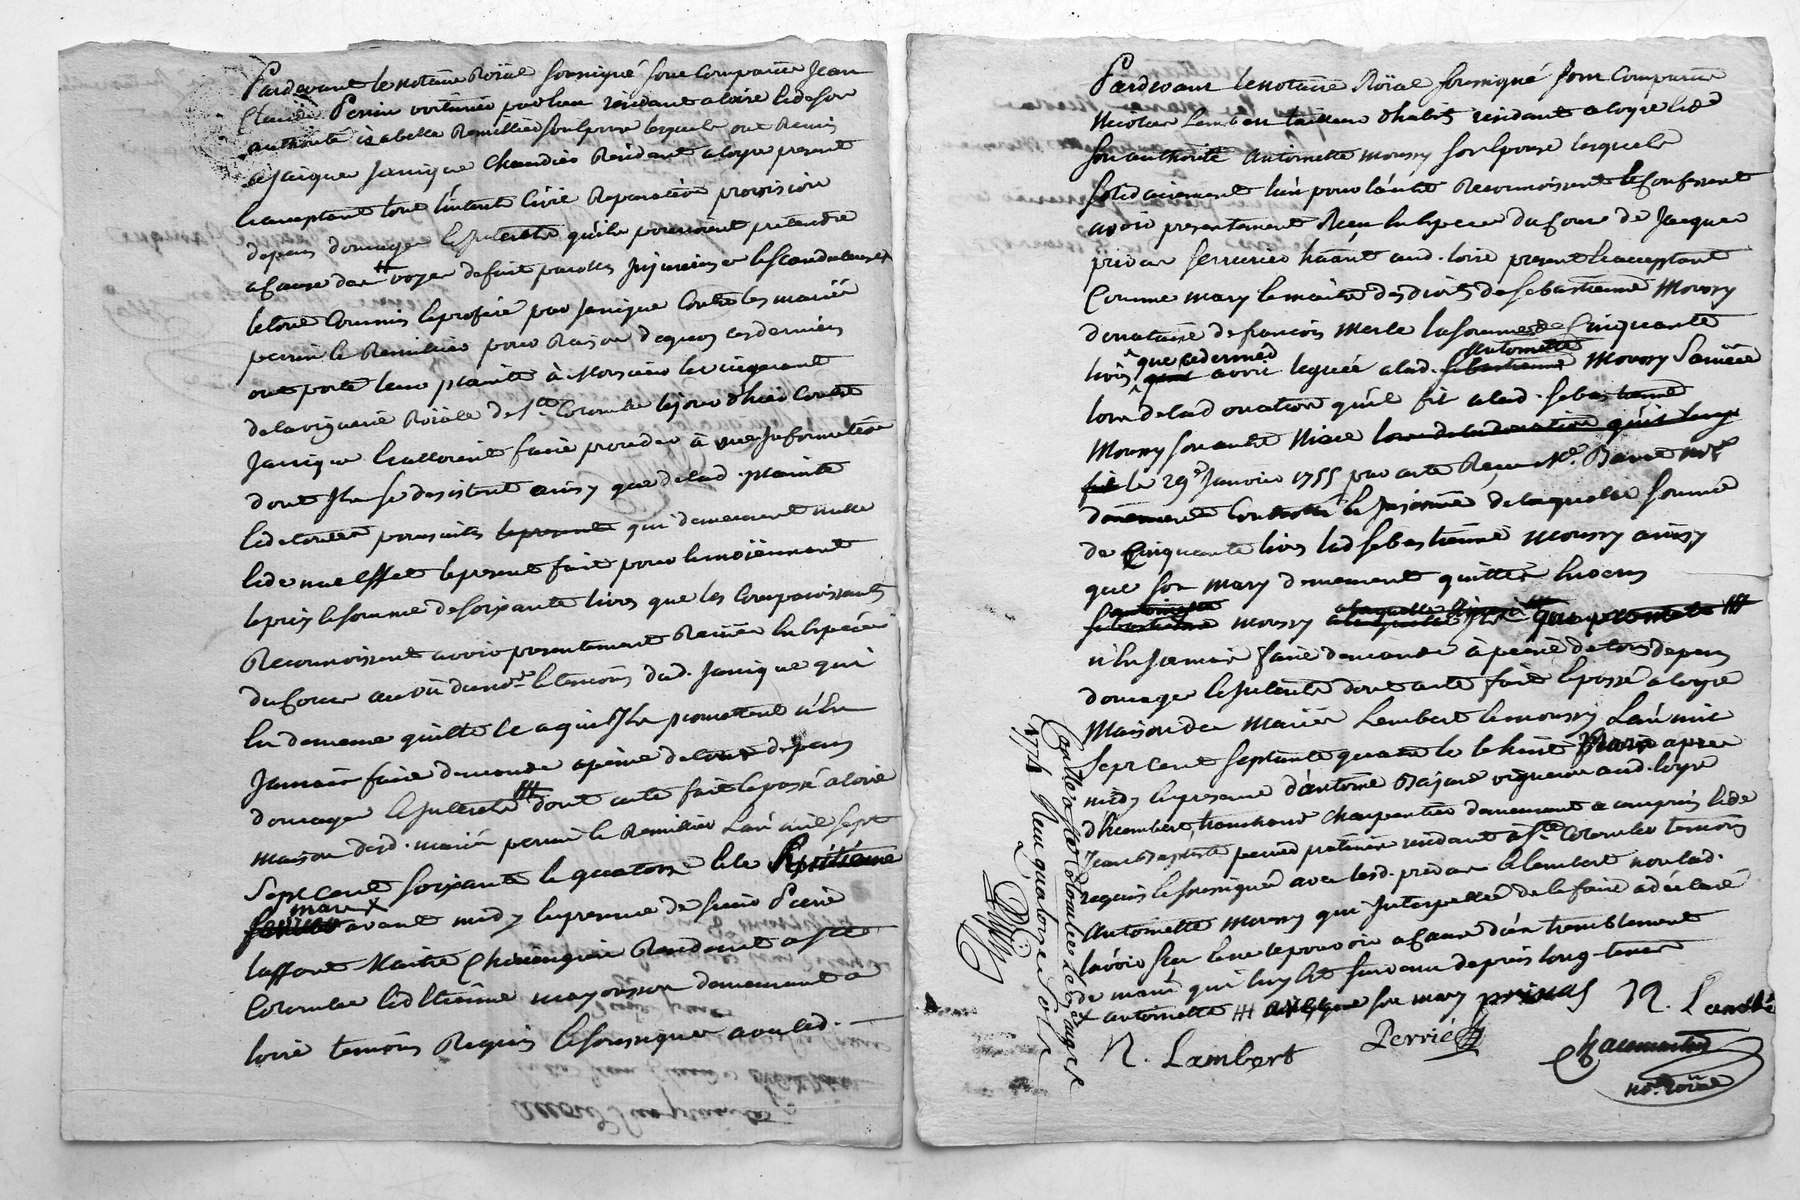 Pardevant le notaire Roïal soussigné sont comparus Jean
Claude Perrin voiturier par eau résidant a loire & de son
authorité izabelle Remillier son épouse lesquels ont Remis
a Jacque Janique Chandier Résidant a loyre present
& acceptant tous l'intent Civie Reparation provision
depens domage & interets qu'ils pourroient prétendre
a Cause des voyes de fait parolles Injurieuses & escandaleuses
le tout Commis & proferé par Janique Contre les mariés
perrin & Remillier pour Raison dequoy ces derniers
ont porté leur plainte à Monsieur le viegerant
de la viguerie Roïalle de Ste Colombe le jour d'hier Contre
Janique & alloient faire proceder à une Information
dont Ils se desistent ainsy que de lad. plainte
& de toutes poursuites qui demeurent nulle
& de nul effet le present fait pour & moïennant
le prix & somme de soixante livres que les Comparoissants
Reconnoissent avoir presentement Recües En Espéces
du Cour au vû du nore & temoins dud. Janique qui
En demeure quitte & aquis Ils promettent n'En
Jamais faire demande a peine de tous depens
domages & interets dont acte fait & passé a loire
maison desd. mariés perrin & Remillier L'an mil sept
Sept cent soixante & quatorse & le
mars avant midy En presence de sieur Pierre
laffont Maitre Chirurgien Residant a Ste
Colombe & d'Etienne mayousson demeurant a
loire temoins Requis & soussignes avec led.
Pardevant le notaire Roïal soussigné sont Comparus
Nicolas Lambert tailleur d'habits residant a loyre & de
son authorité antoinette moussy son épouse lesquels
solidairement l'un pour l'autre Reconnoissent & Confessent
avoir presentement Reçu En Espéces du Cour de Jacques
privas serrurier habitant aud. loire present & acceptant
Comme mary & maitre des droits de sebastienne Moussy
donnataire de francois merle la somme de Cinquante
livres que ce dernier avoit leguée a lad. antoinette Moussy Sa niéce
lors de la donation qu'il fit a lad. sebastienne
Moussy son autre Niéce
le 29e Janvier 1755 par acte Reçu Me. Barre nore
düement Controllé & Insinué de laquelle somme
de Cinquante livres lad sebastienne moussy ainsy
que son mary demeurent quittes Envers
moussy
n'En Jamais faire demande à peine de tous depens
domages & interets dont acte fait & passé a loyre
Maison des mariés Lambert & moussy L'an mil
Sept cent septante quatre & le huit Mars apres
midy En presence d'antoine Bajard vigneron aud. loyre
d'humbert tranchant charpentier demeurant a ampuis & de
Jean Baptiste perrier praticien residant à Ste Colombe temoins
requis & soussignés avec lesd. privas & lambert non lad.
Antoinette moussy qui Interpellée de le faire a déclaré
l'avoir sçu & ne le pouvoir a Cause d'un tremblement
de mains qui luy est survenu depuis long-tems
antoinette son mary privas N. Lambert
N. Lambert Perrié
Chaumartin
nore roïal
Contlé a Ste Colombe le 14 mars
1774 Reçu quatorze sols